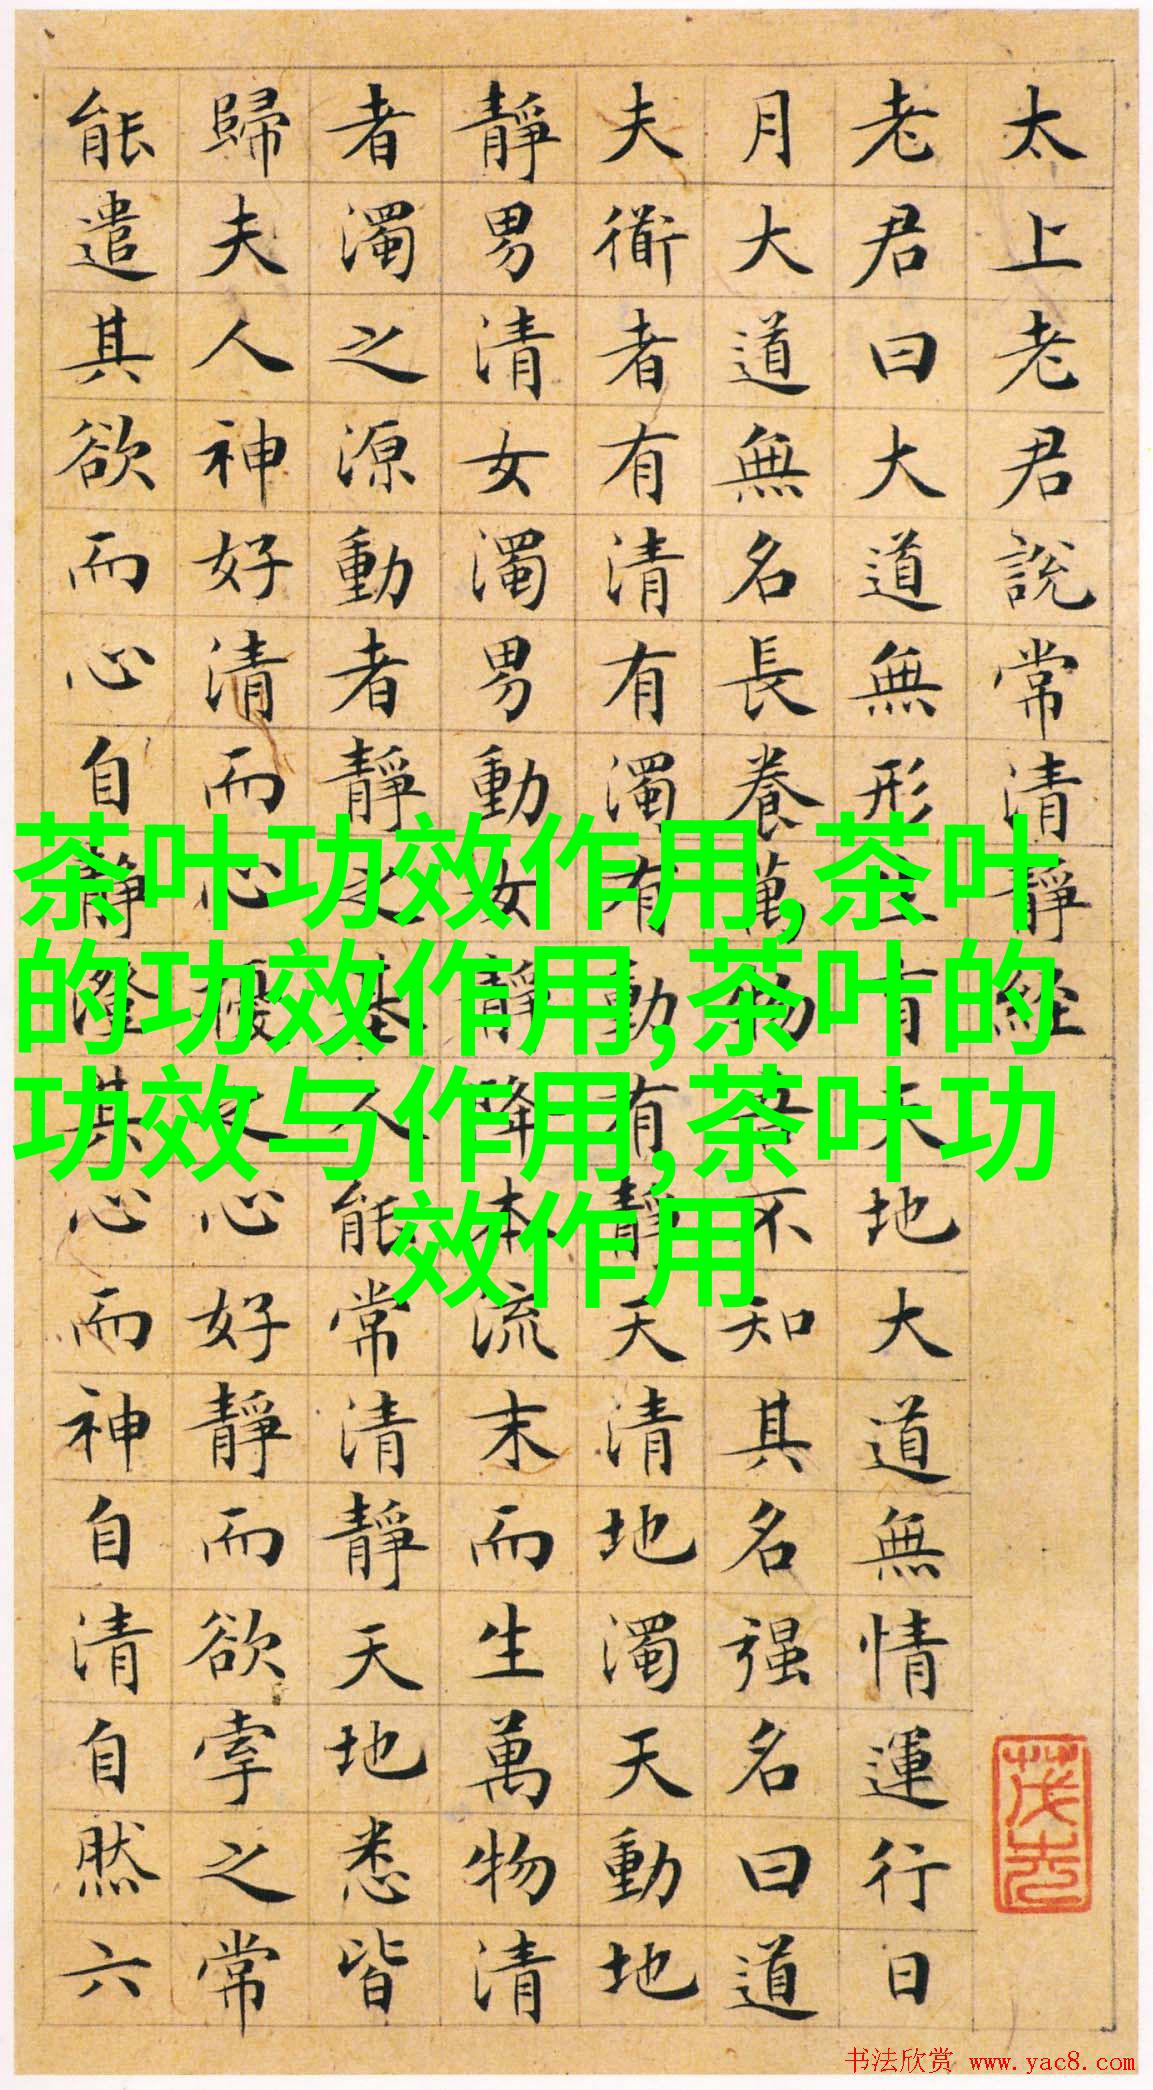 太上老君說常清靜經
老君曰大道無形生育天地大道無情運行日
月大道無名長養萬物吾不知其名强名曰道
夫衜者有清有濁有動有靜天清地濁天動地
靜男清女濁男動女靜降本流末而生萬物清
者濁之源動者靜之基人能常清靜天地悉皆
歸夫人神好清而心擾之心好靜而欲牽之常
能遣其欲而心自靜澄其心而神自清自然六
茶叶功效作用,茶叶
的功效作用,茶叶的
功效与作用,茶叶功
效作用
书法欣赏 www.yac8.com